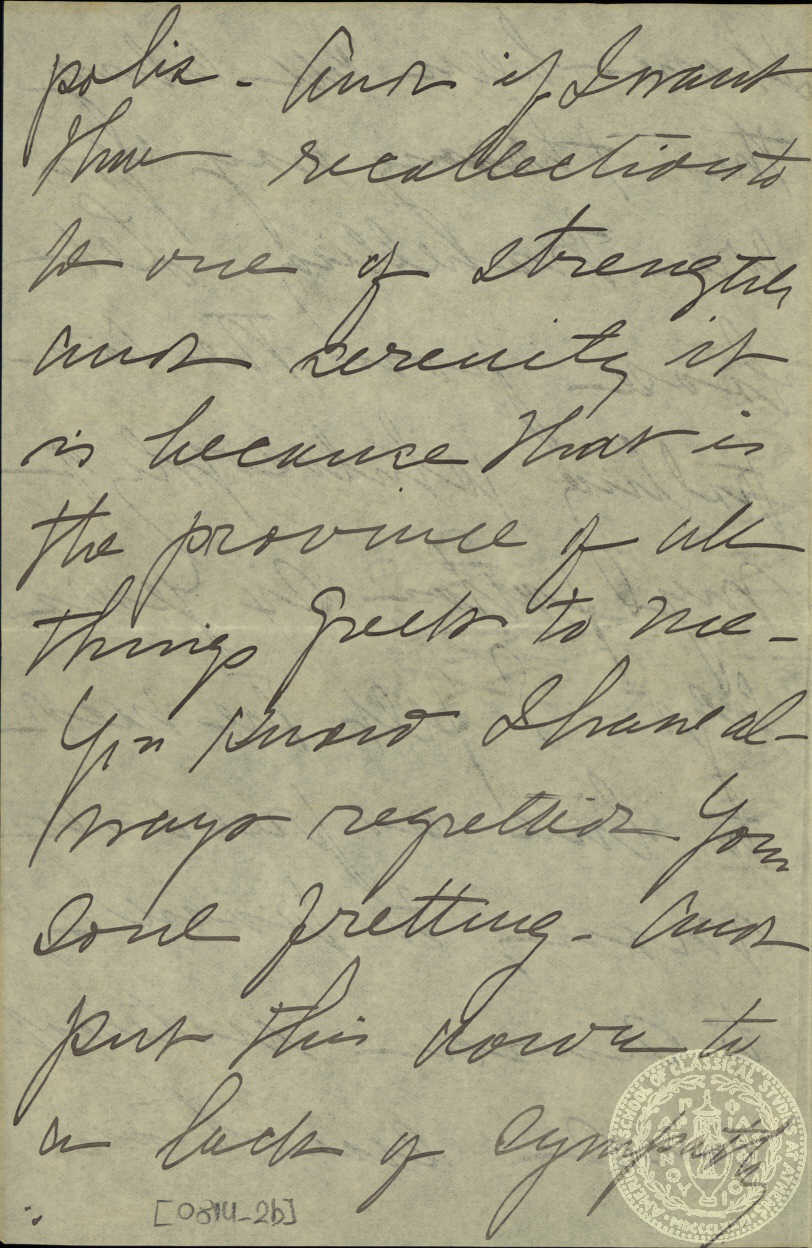 polis - And if I want
this recollection to
be one of strength
and serenity it
is because that is
the province of all
things Greek to me -
You know I have al-
ways regretted your
soul fretting - And
put this down to
a lack of sympathy
[0814-2b]
AMERICAN SCHOOL OF CLASSICAL STUDIES AT ATHENS
MDCCCLXXXI